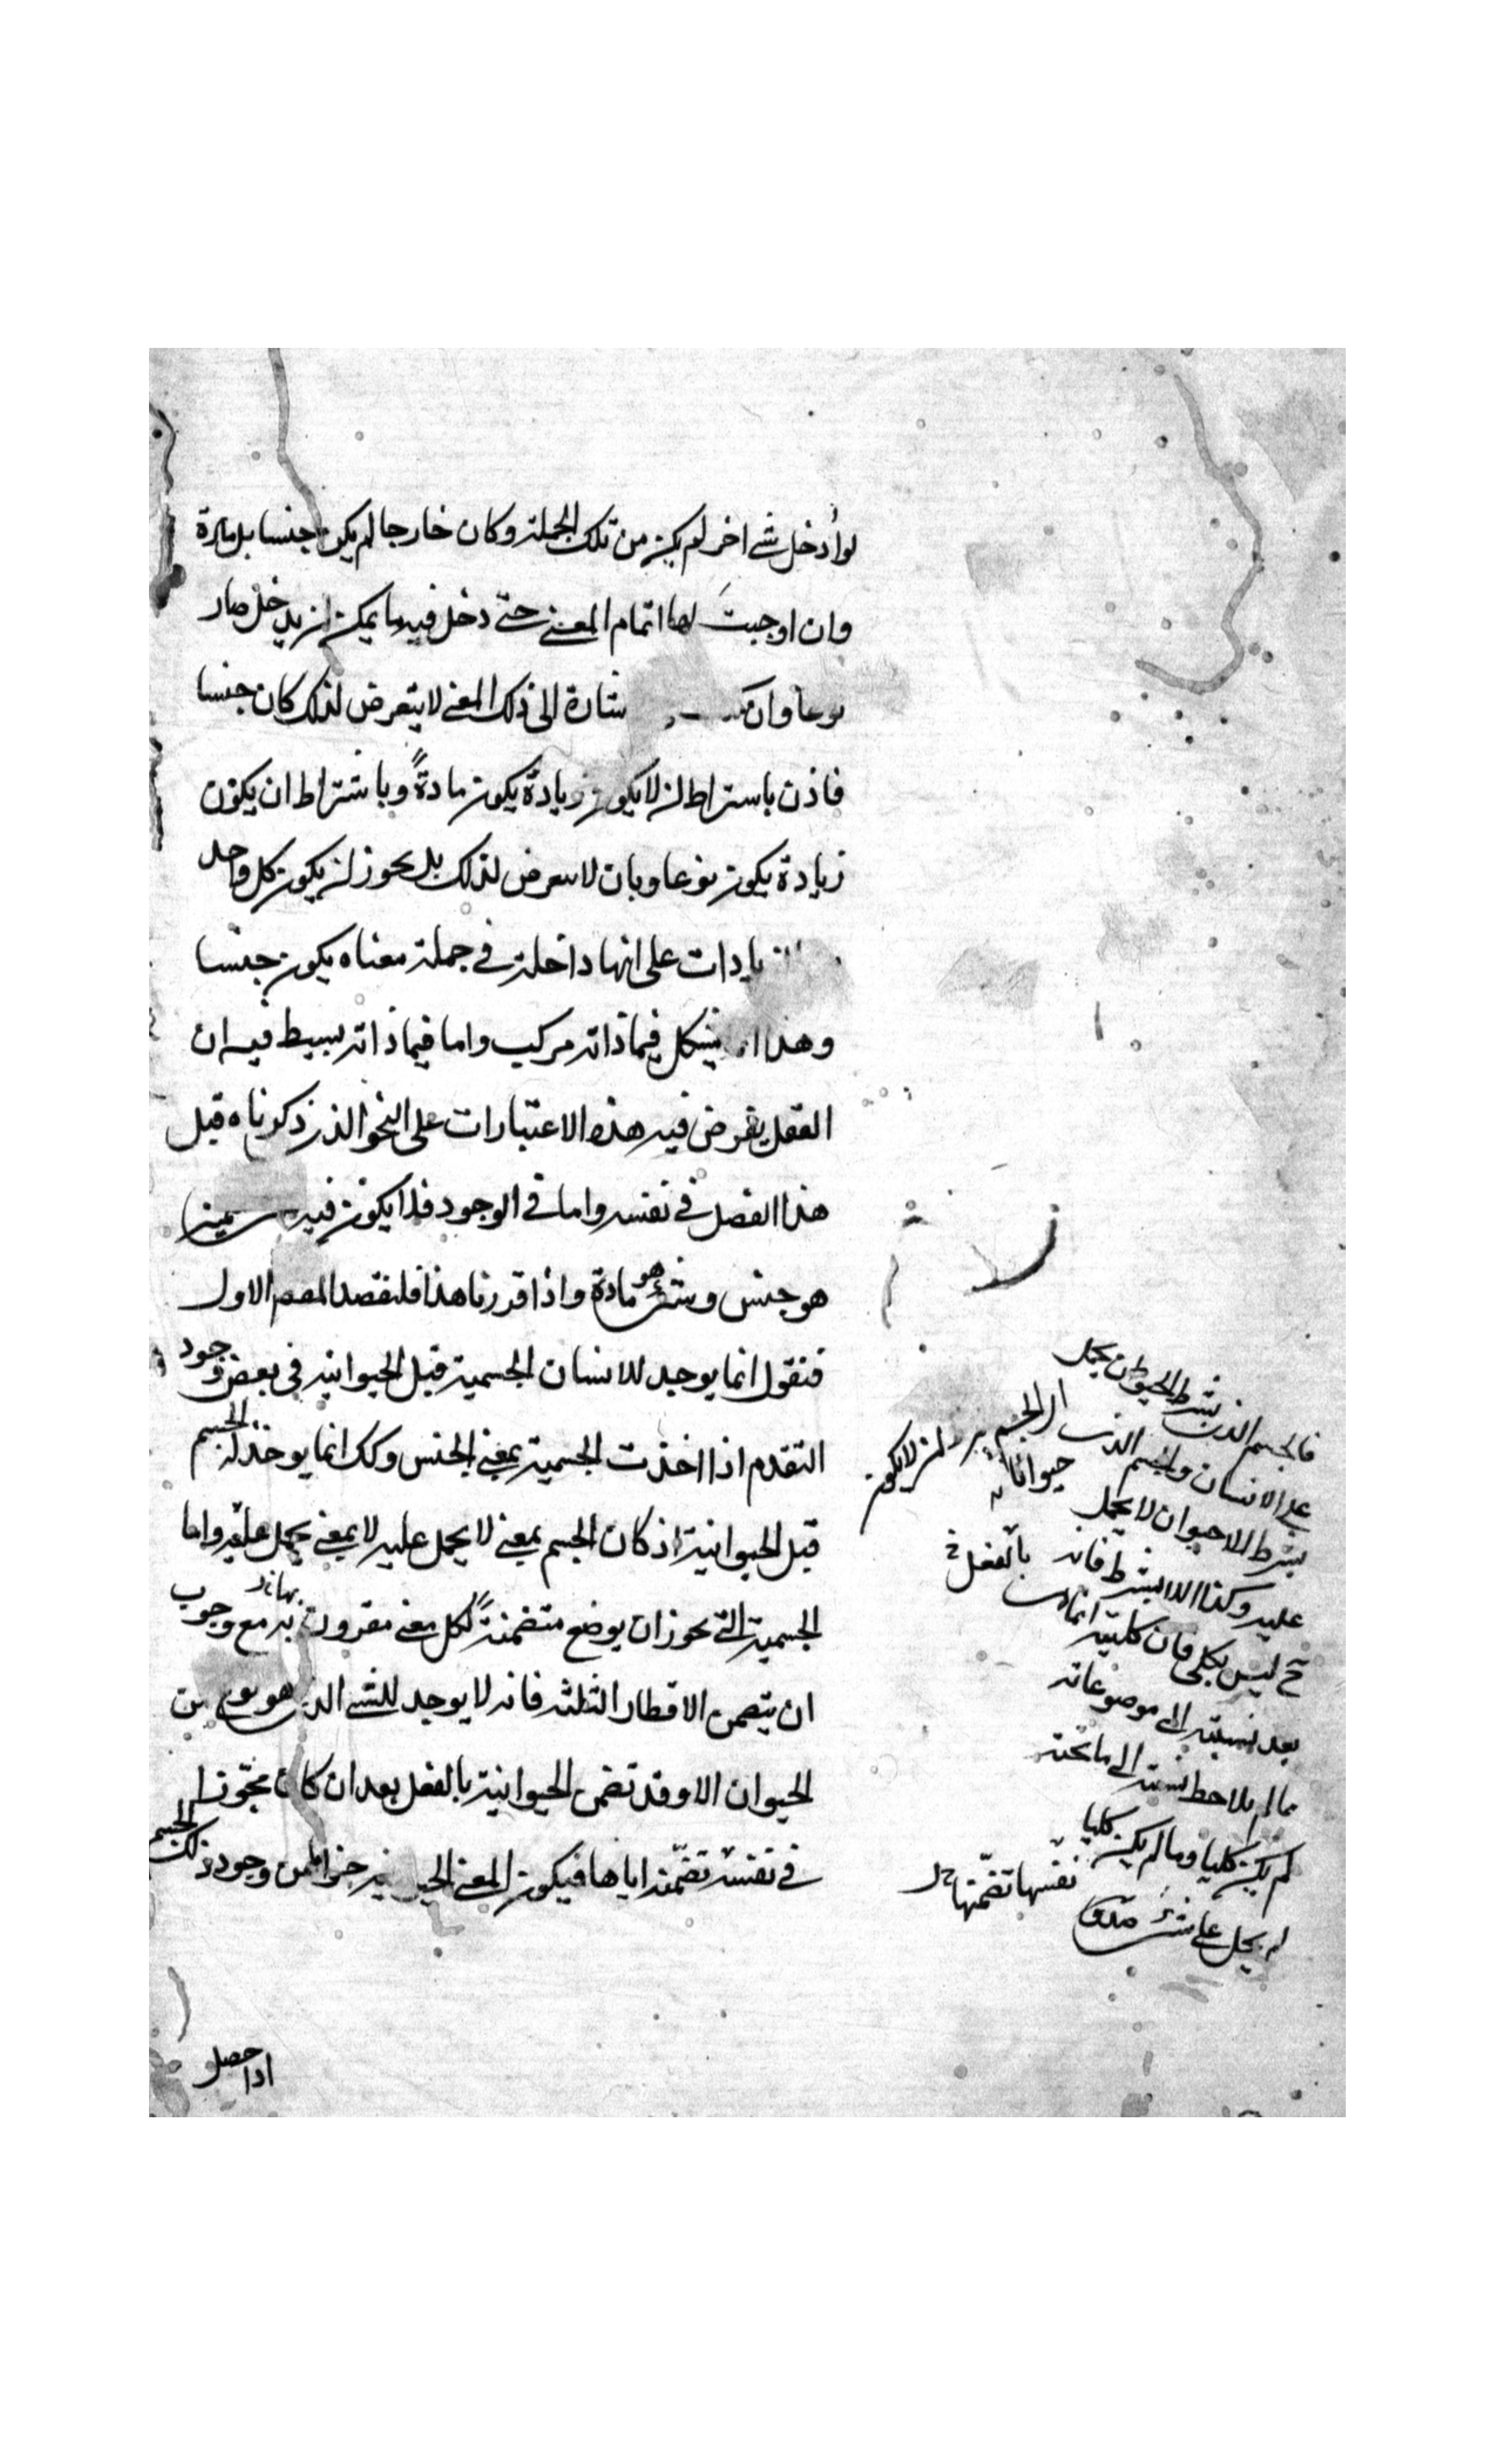 لو أدخل شئ اخر لم يكن من تلك الجملة وكان خارجا لم يكن جنسا بل مادة
وان اوجبت لها اتمام المعنى حتى دخل فيه ما يمكن ان يدخل صار
نوعا وان شارة الى ذلك المعنى لا يتعرض لذلك كان جنسا
فاذن باستراط ان لا يكون زيادة يكون مادةً وباشتراط ان يكون
زيادة يكون نوعا وبان لا يتعرض لذلك بل يجوز ان يكون كل واحد
يادات على انها داخلة في جملة معناه يكون جنسا
وهذا يشكل فيما ذاته مركب واما فيما ذاته بسيط فيه ان
العقل يفرض فيه هذه الاعتبارات على النحو الذى ذكرناه قبل
هذا الفصل في نفسه واما في الوجود فلا يكون فيه
هو جنس وشئ هو مادة واذا قررنا هذا فلنقصد الاول
فنقول انما يوجد للانسان الجسمية قبل الحيوانيه في بعض وجود
التقدم اذا اخذت الجسمية بمعنى الجنس وكك انما يوخذ له الجسم
قبل الحيوانية اذ كان الجسم بمعنى لا يحمل عليه لا بمعنى يحمل عليه واما
الجسمية التى يجوز ان يوضع متضمنةً لكل معنى مقرون به مع وجوب
ان يتضمن الاقطار الثلثة فانه لا يوجد للشئ الذى هو نوع من
الحيوان الا وقد تضمن الحيوانية بالفعل بعد ان كان مجوّزا
في نفسه تضمّنه اياها فيكون المعنى جزأ ما من وجود ذلك الجسم
فالجسم الذى بشرط الحيوان يحمل
على الانسان والجسم الذى
اى الجسم ان لا يكون
حيوانا
بشرط اللاحيوان لا يحمل
عليه وكذا اللابشرط فانه بالفعل
ح ليس بكلى فان كليته انما
بعد نسبته الى موضوعاته
مالم يلاحظ نسبته الى ما تحته
لم يكن كليا وما لم يكن كليا
لم يحمل على شئ
نفسها تضمّنها
اذا حصل